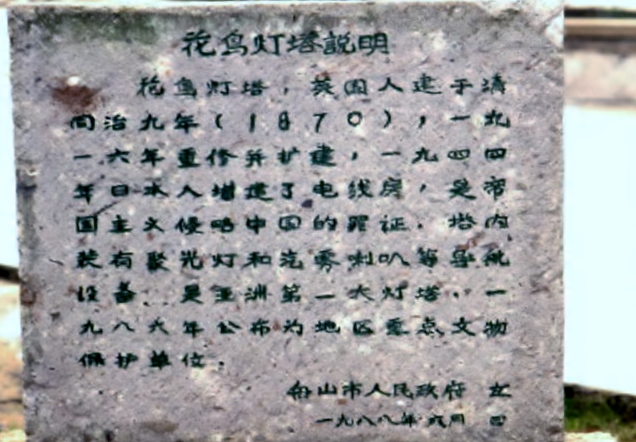 花鸟灯塔説明
花鸟灯塔，英国人建于清
同治九年(1870)，一九
一六年重修并扩建，一九四四
年日本人增建了电线房，是帝
国主义侵略中国的罪证．塔内
装有聚光灯和汽雾喇叭等导航
设备．是亚洲第一大灯塔．一
九八六年公布为地区重点文物
保护单位．
舟山市人民政府 立
一九八八年六月 四